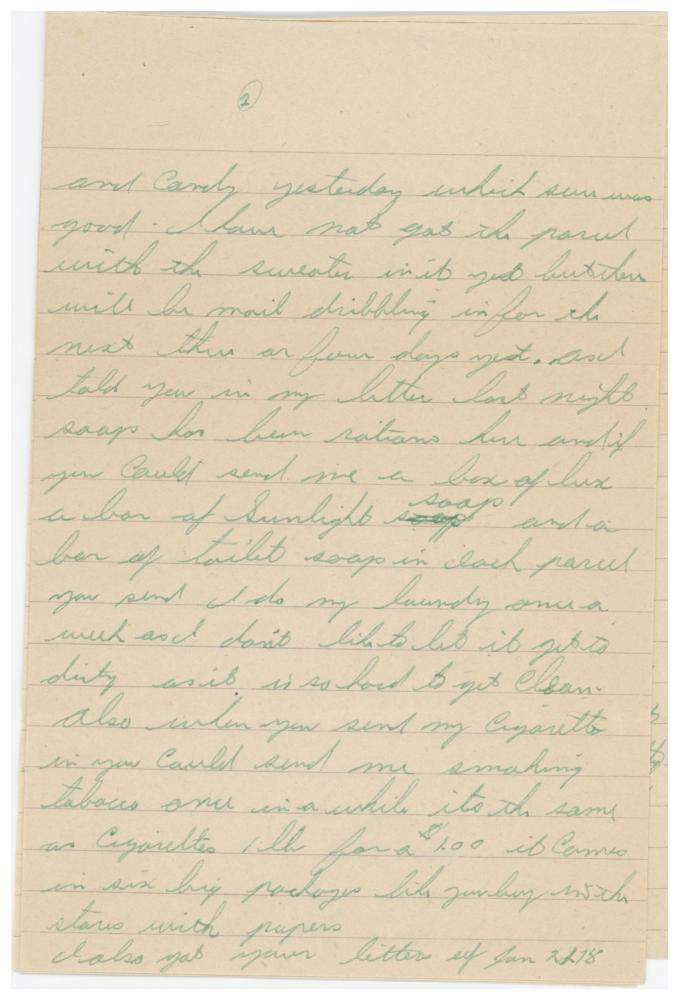 2
and Candy yesterday which sure was
good. I have not got the parcel
with the sweater in it yet but there
will be mail dribbling in for the
next three or four days yet. as I
told you in my letter last night
soap has been rations here and if
you Could send me a box of lux
a bar of Sunlight soap and a
bar of toilet soap in each parcel
you send I do my laundry once a
week as I don't like to let it get to
dirty as it is so hard to get Clean.
Also when you send my Cigarette
in you Could send me smoking
tobacco once in a while its the same
as Cigarettes 1 lb for a $1.00 it Comes
in six big packages like you buy in the
stores with papers
I also got your letters of Jan